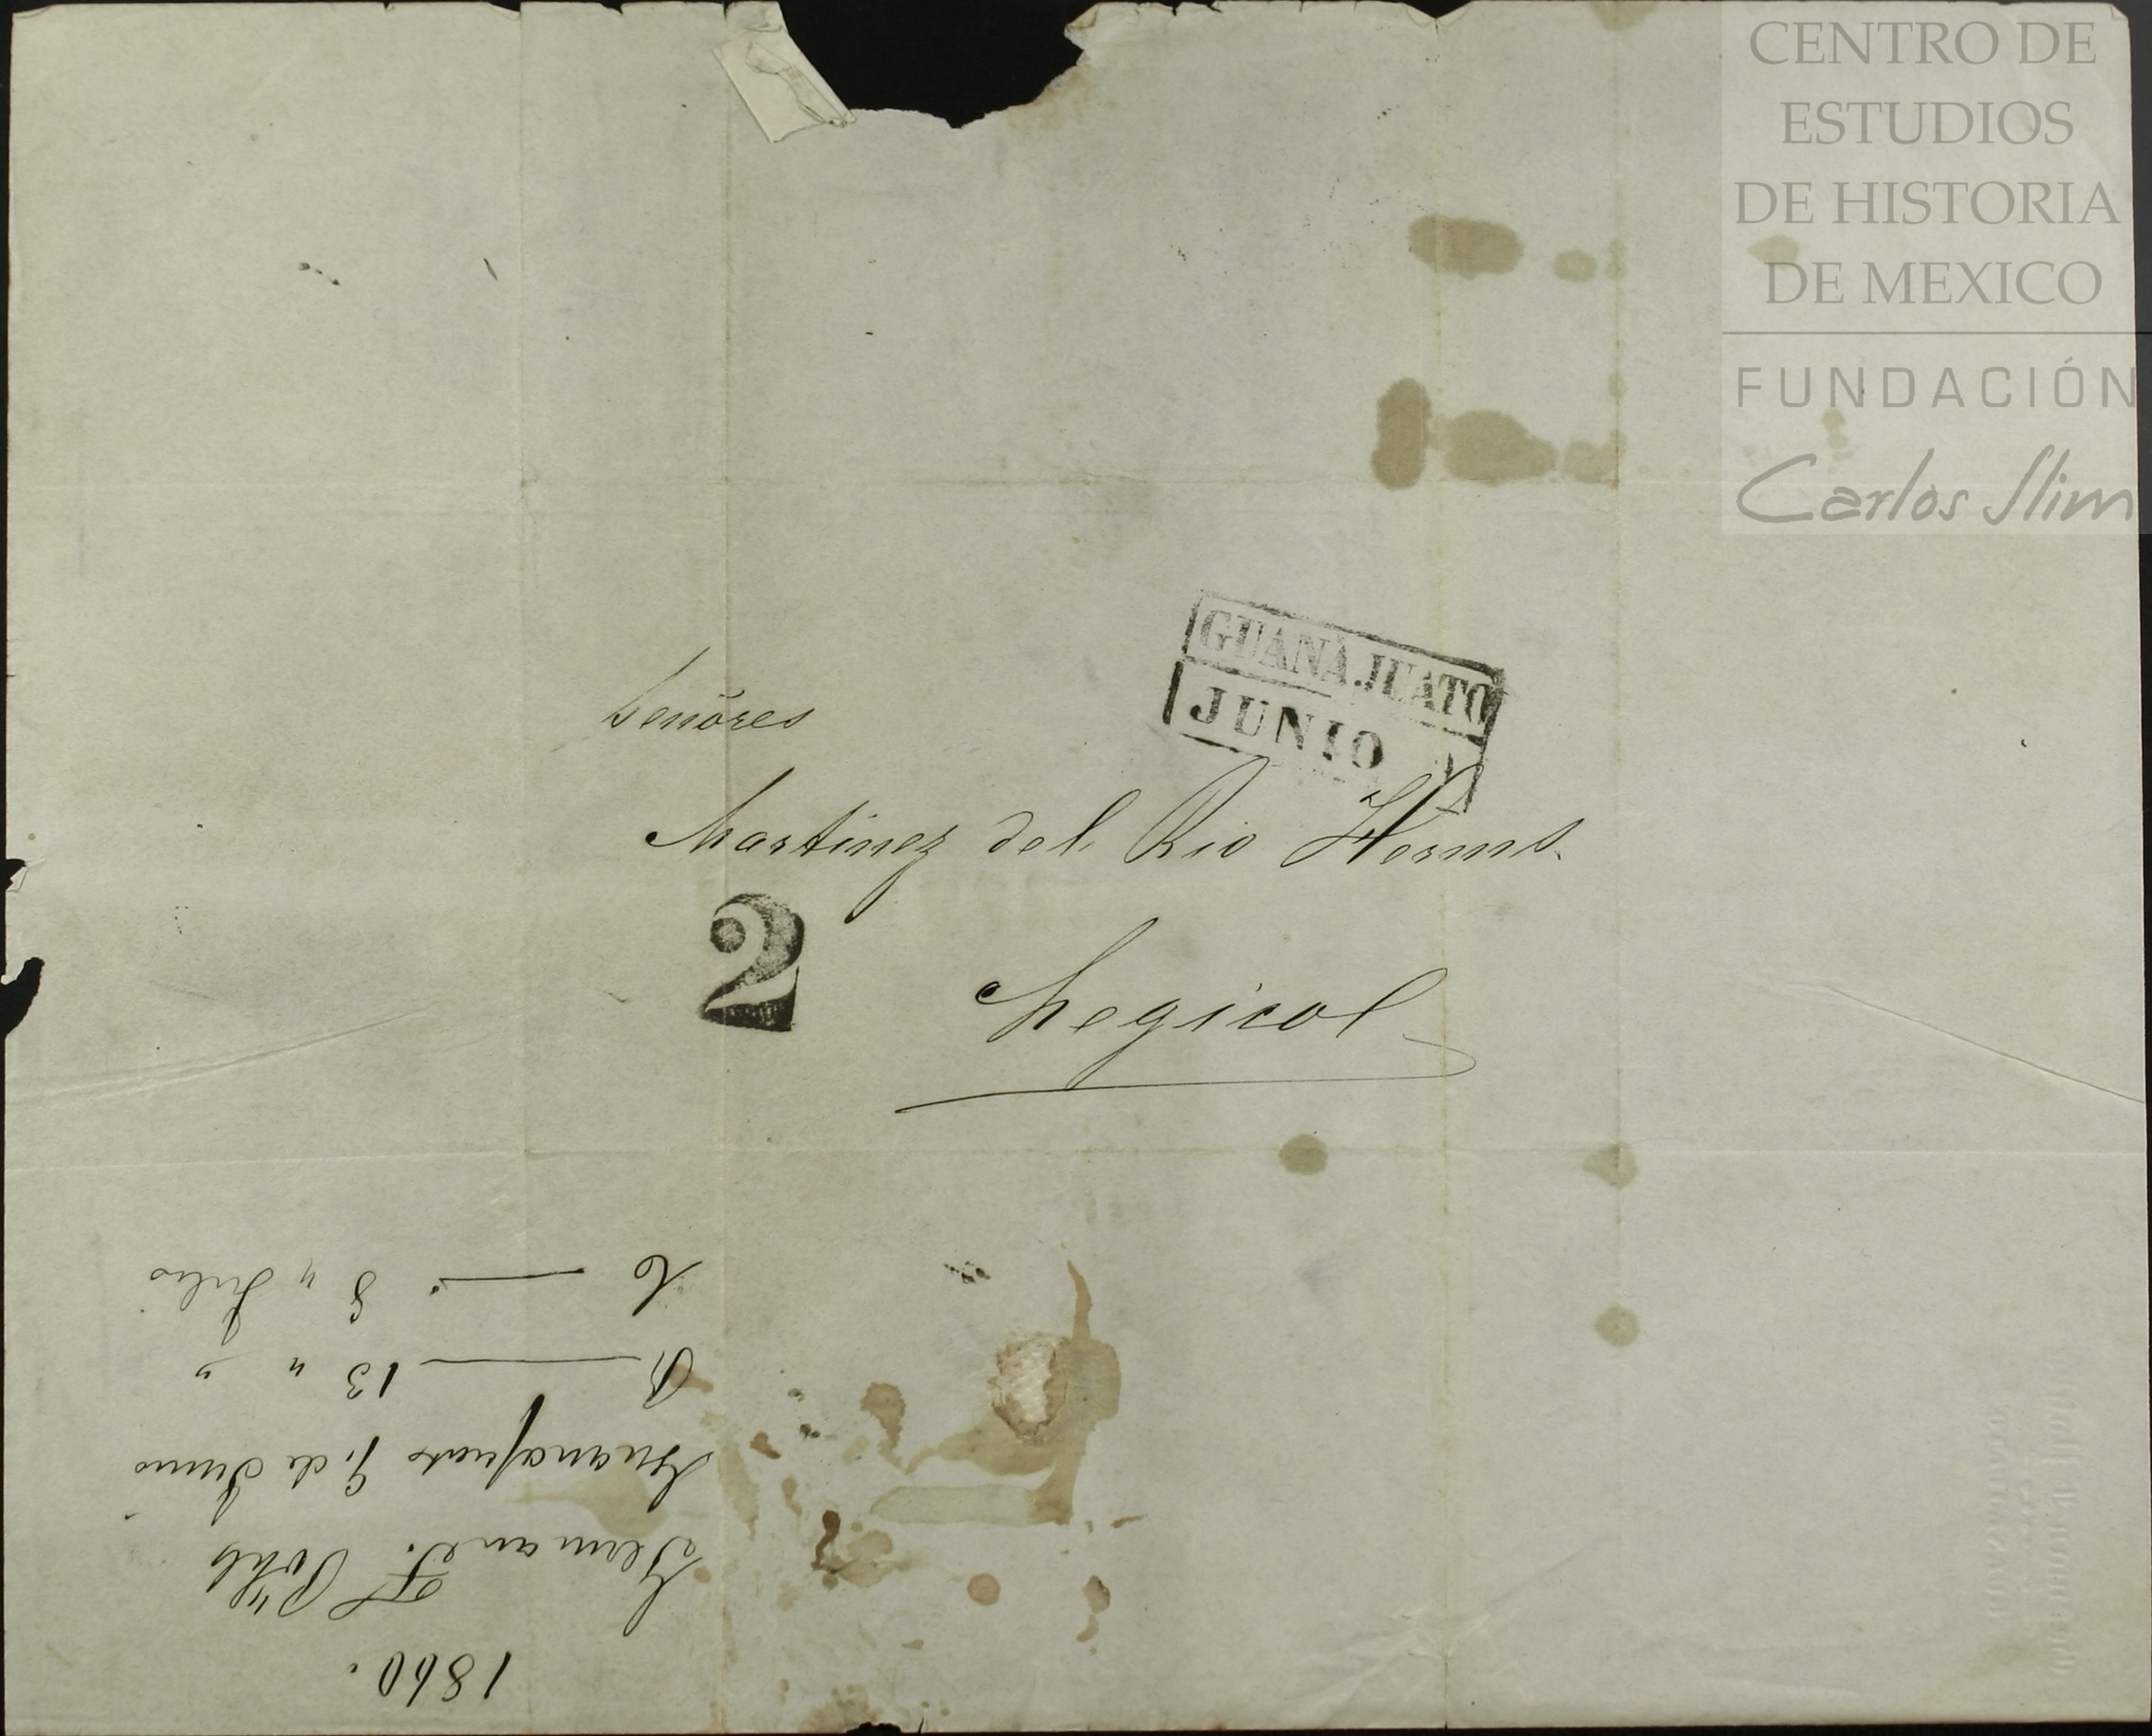 CENTRO DE
ESTUDIOS
DE HISTORIA
DE MEXICO
FUNDACIÓN
Carlos Slim
GUANAJUATO
JUNIO
Señores
Martinez del Rio Herms.
2
Megico
1860.
German F.
Guanajuato 9, de Junio
R, — 13 " "
C — 8 " Julio